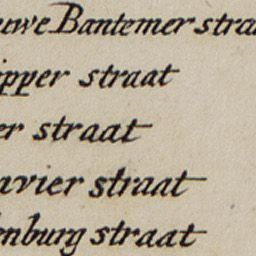 uwe Bantemer straa
ipper straat
er straat
avier straat
enburg straat